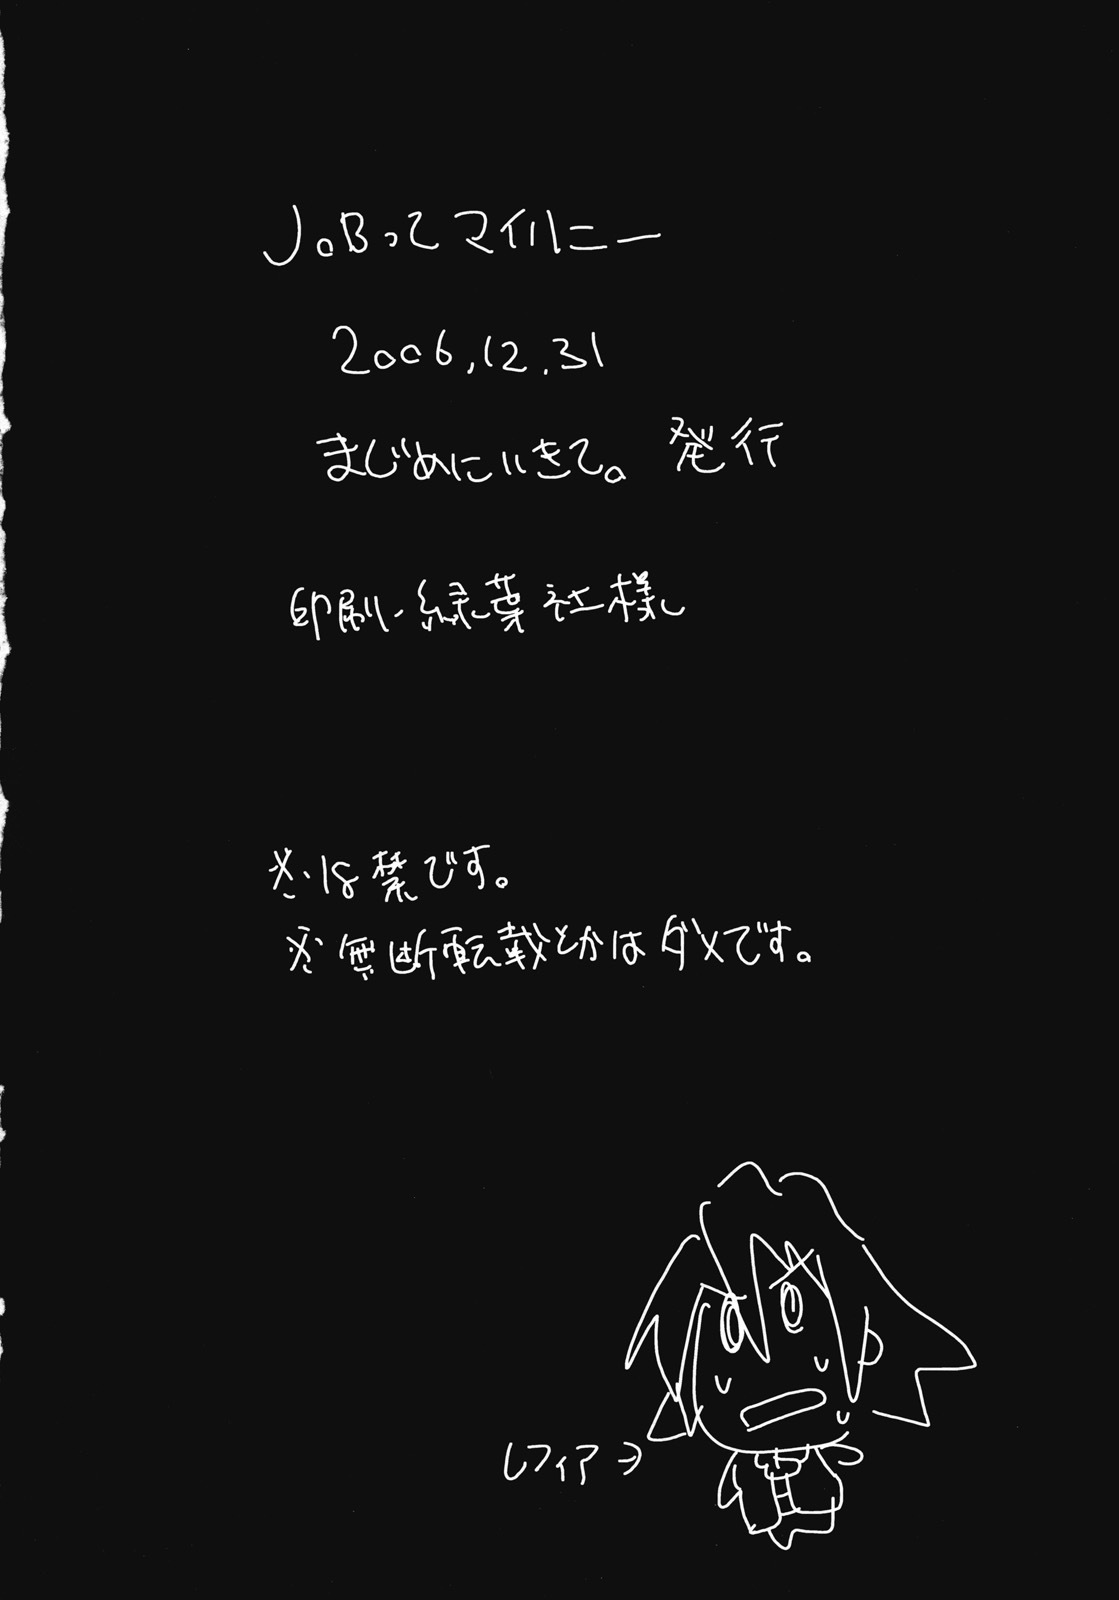 JoBってマイハニー
2006.12.31
まじめにいきて。発行
印刷・緑葉社様
※・は禁です。
※無断転載とかはダメです。
レフィア→